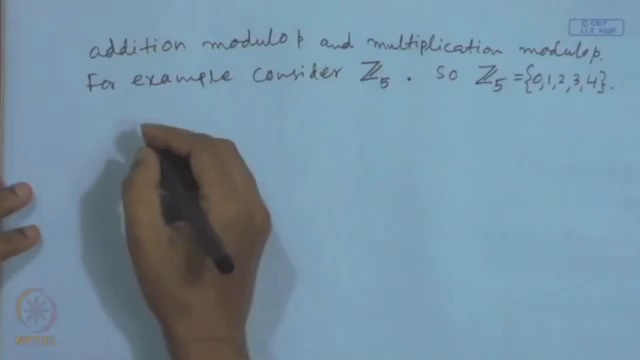 © CET
I.I.T. KGP
addition modulo p and multiplication modulo p.
For example consider ℤ₅ . So ℤ₅ = {0,1,2,3,4}.
NPTEL